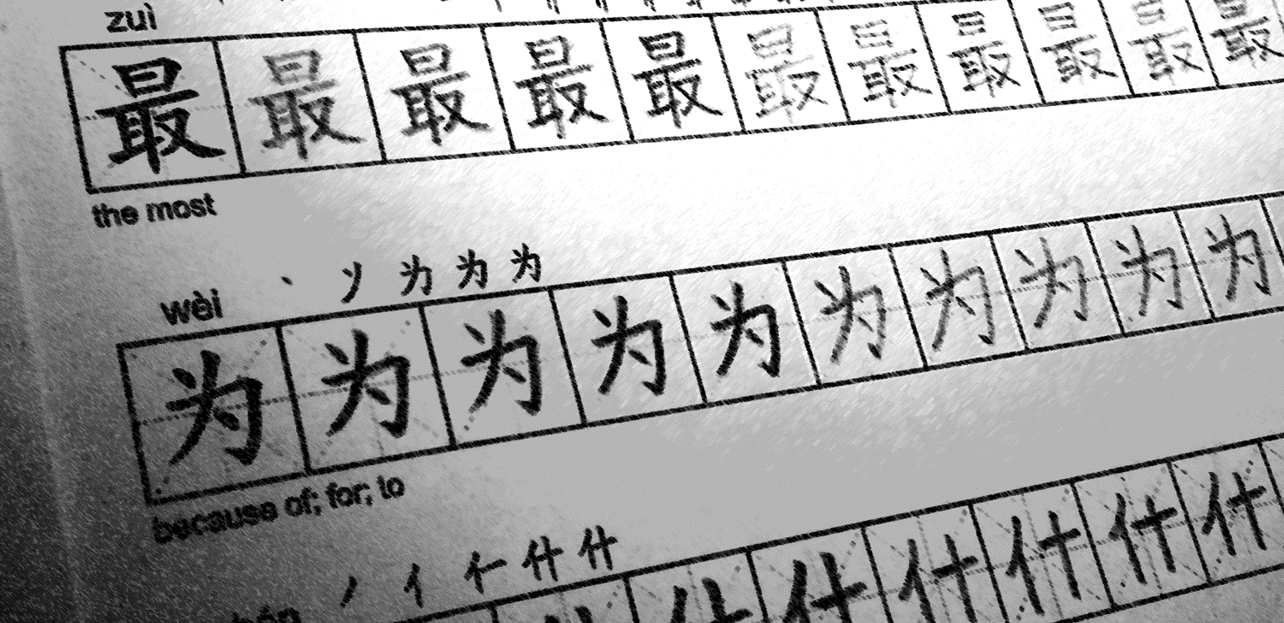 zuì
最 最 最 最 最 最 最 最 最 最 最
the most
wèi 丶 ソ 为 为 为
为 为 为 为 为 为 为 为 为 为
because of; for; to
丿 亻 什 什
什 什 什 什 什 什